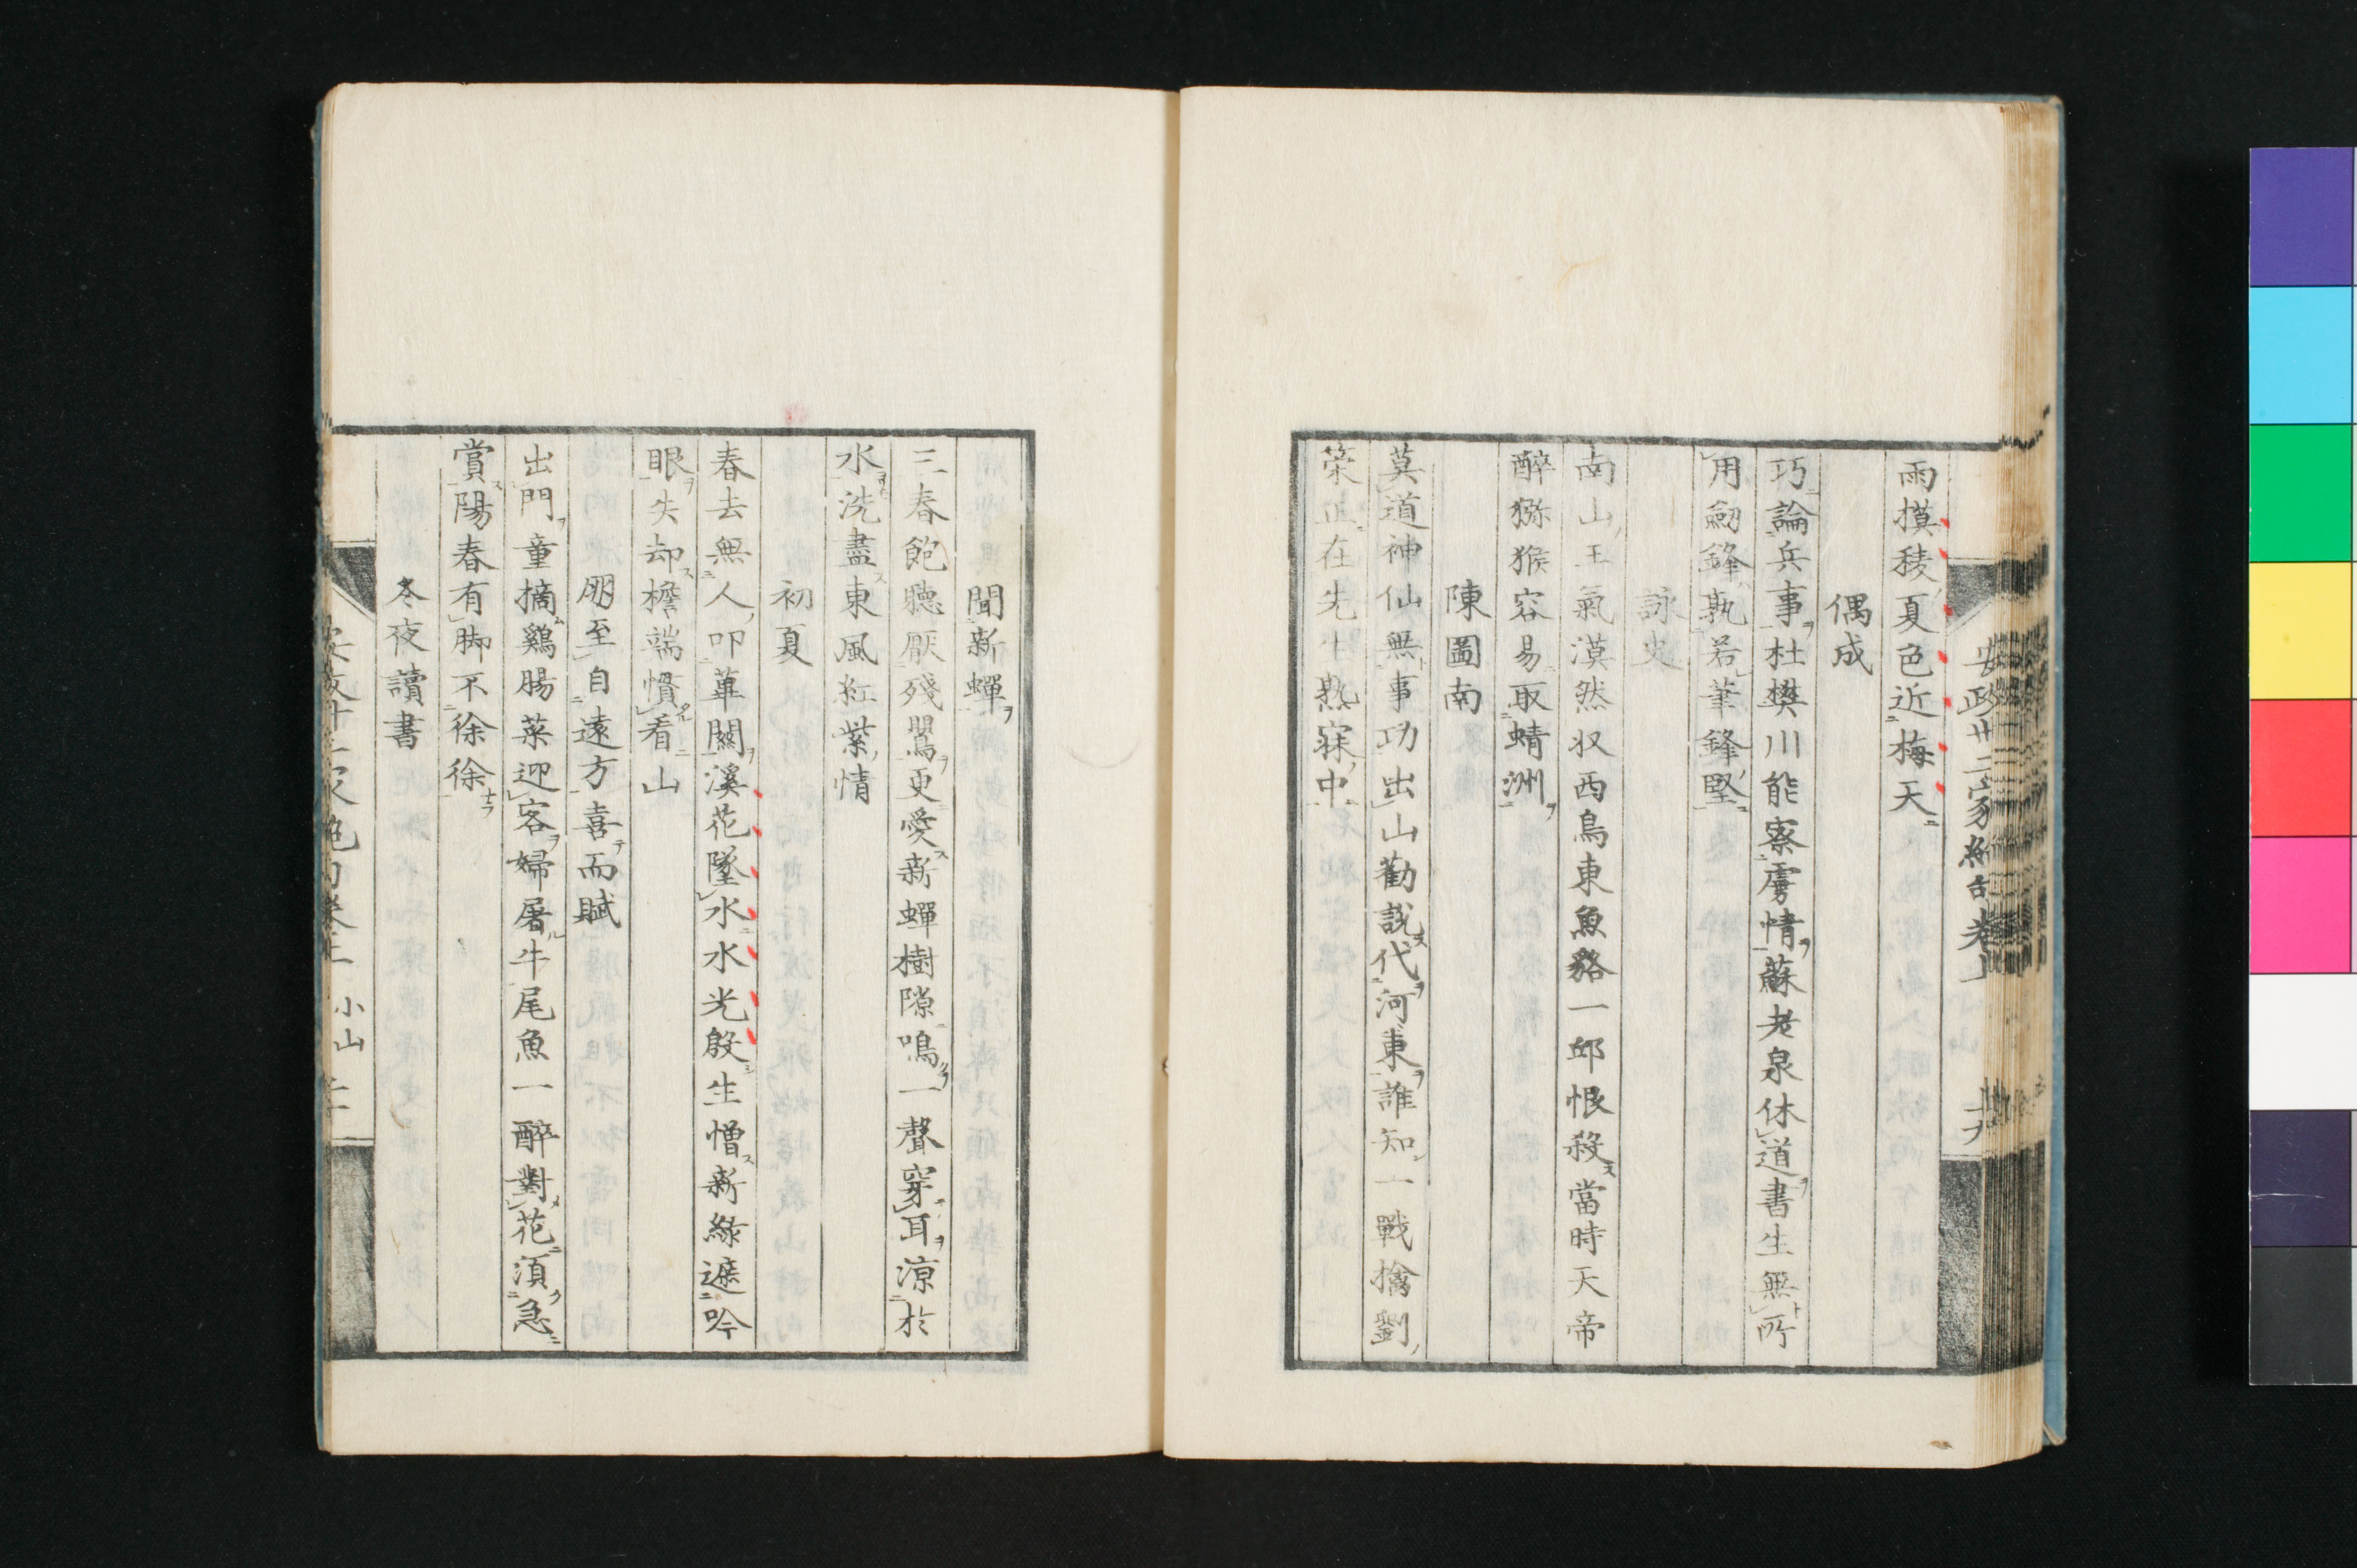 雨摸稜夏色近梅天
偶成
巧論兵事杜樊川能察虜情蘇老泉休道書生無所
用劒鋒孰若筆鋒堅
詠史
南山王氣漠然収西鳥東魚貉一邱恨殺當時天帝
醉獼猴容易取蜻洲
陳圖南
莫道神仙無事功出山勸說代河東誰知一戰擒劉
策正在先生熟寐中
聞新蟬
三春飽聽厭殘鶯更愛新蟬樹隙鳴一聲穿耳涼於
水洗盡東風紅紫情
初夏
春去無人叩蓽關溪花墜水水光殷生憎新綠遮吟
眼失却檐端慣看山
朋至自遠方喜而賦
出門童摘鷄腸菜迎客婦屠牛尾魚一醉對花須急
賞陽春有脚不徐徐
冬夜讀書
小山